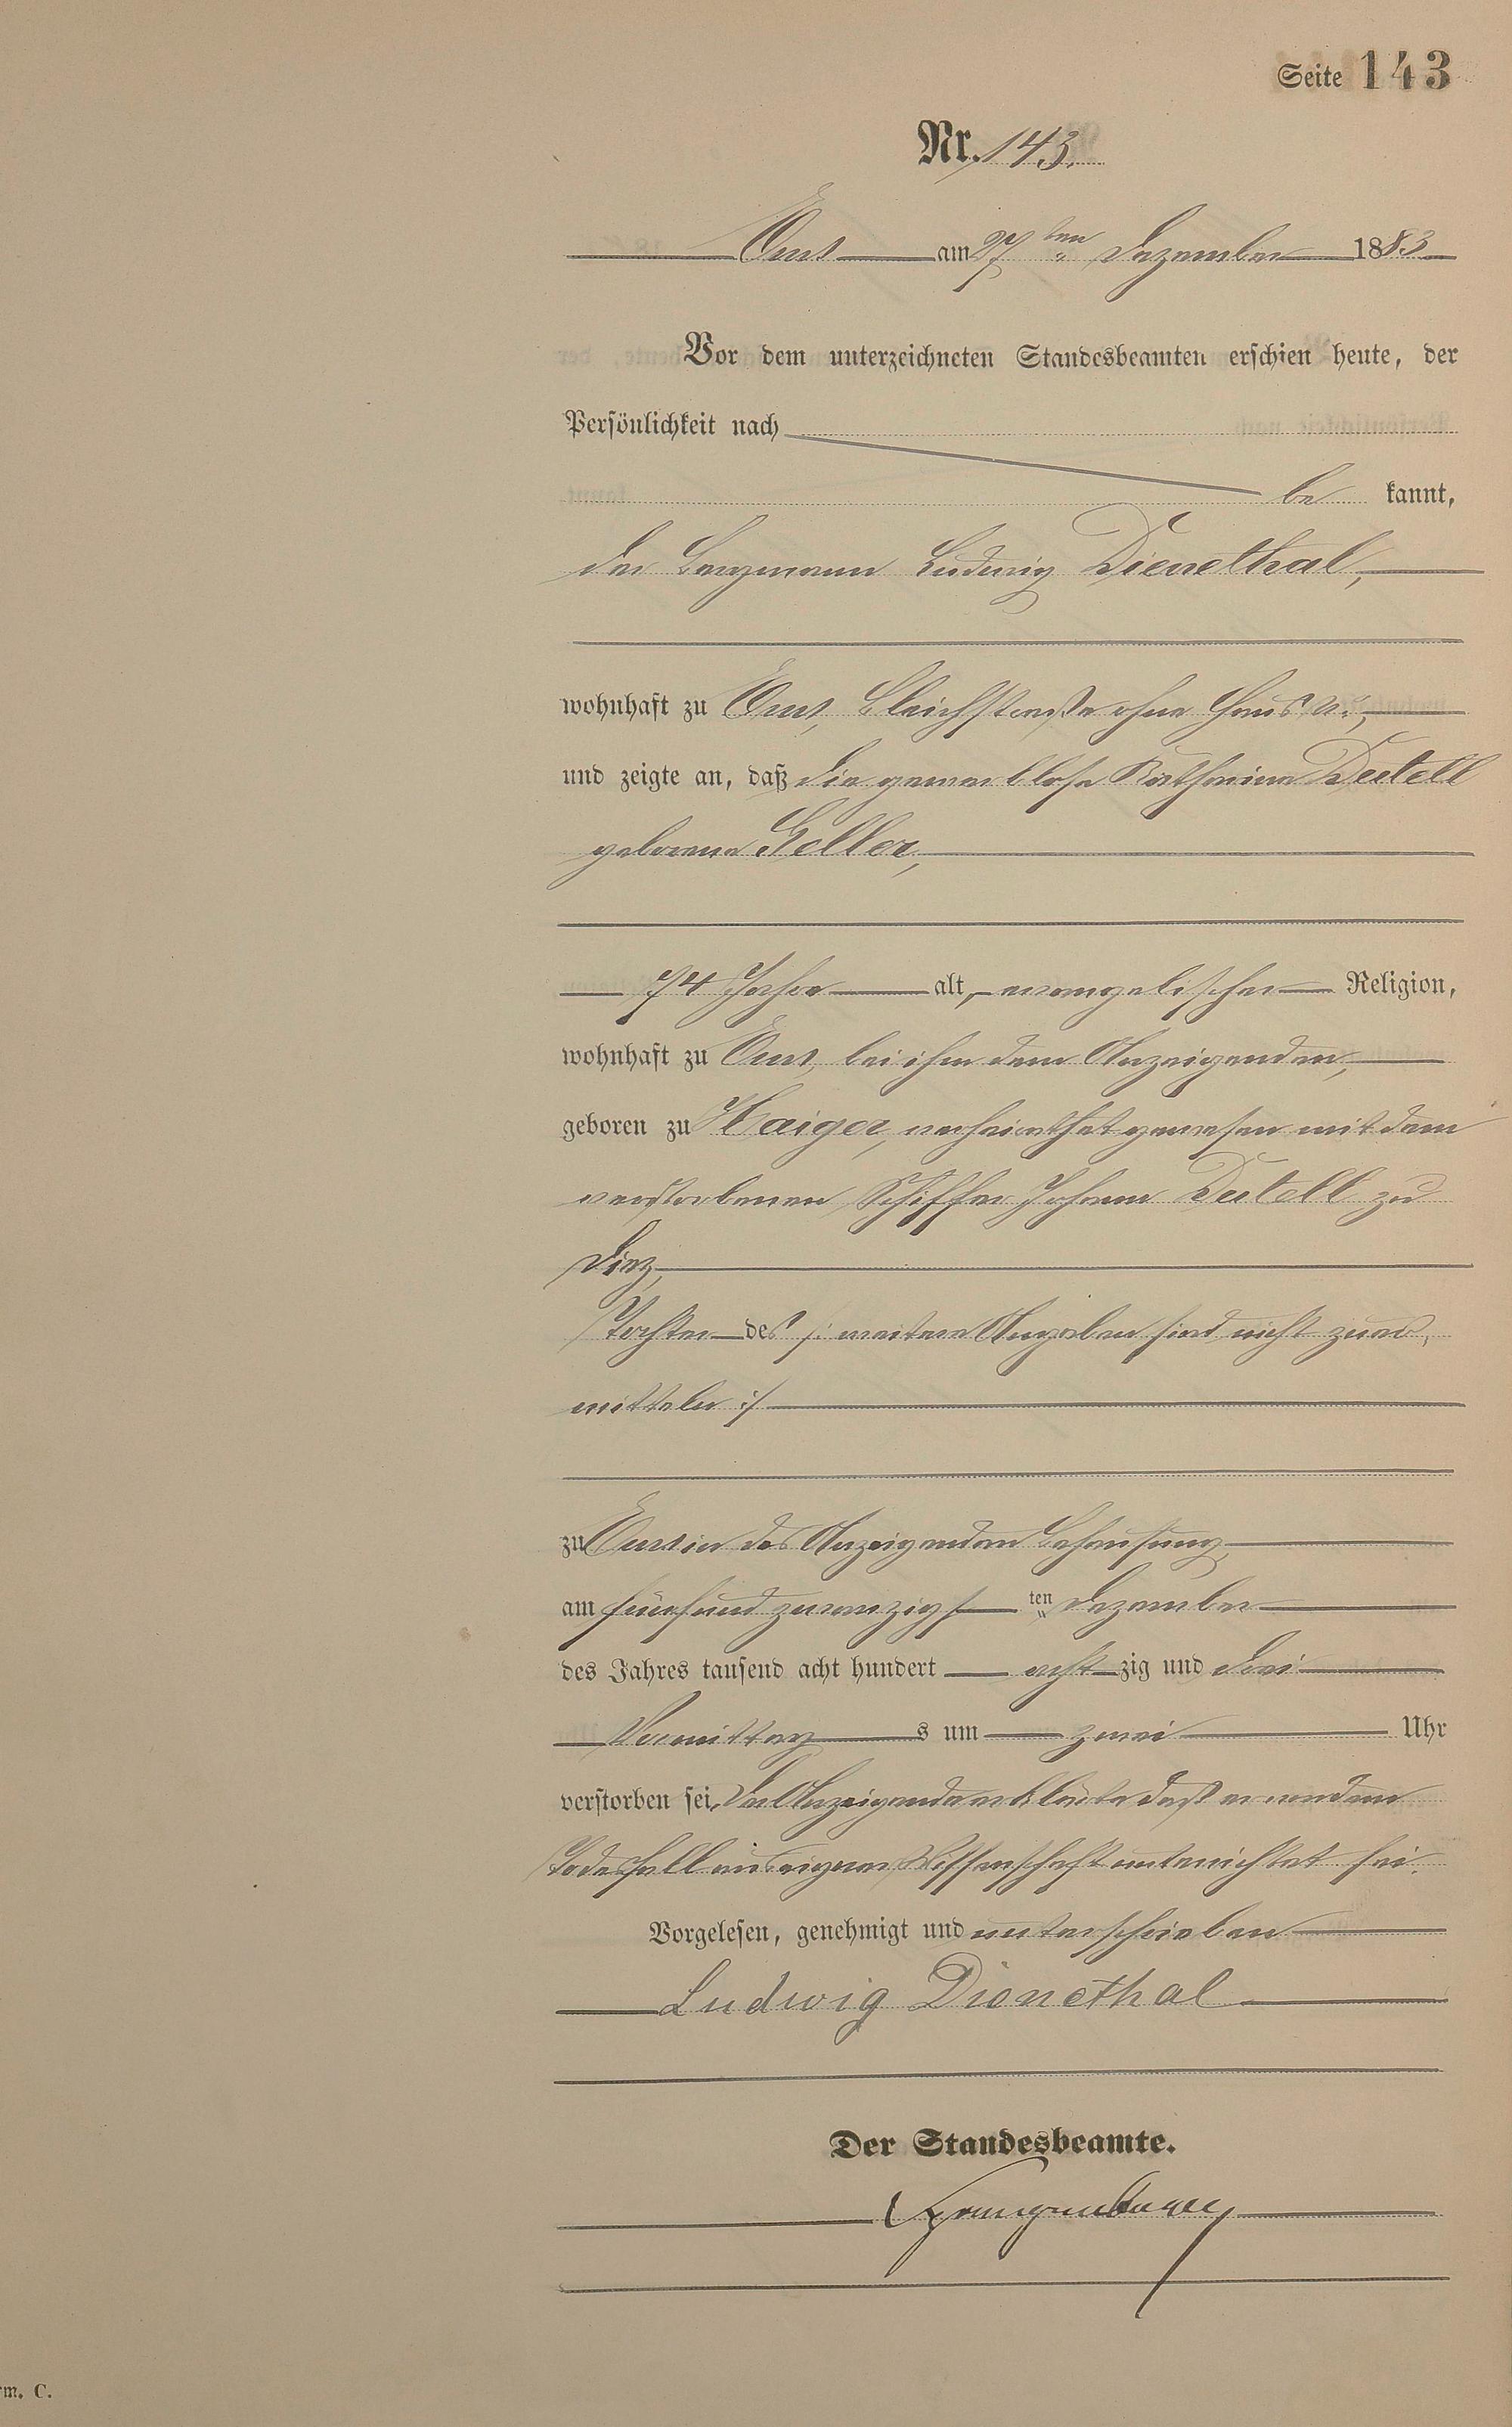 Seite 143
Nr. 143.
Ems am 27ten Dezember 1883
Vor dem unterzeichneten Standesbeamten erschien heute, der
Persönlichkeit nach
be kannt,
der Bergmann Ludwig Dienethal,
wohnhaft zu Ems, Bleichstraße ohne Haus N.,
und zeigte an, daß die gewerblose Katharina Destell
geborene Geller,
74 Jahre alt, evangelischer Religion,
wohnhaft zu Ems, bei ihm dem Anzeigenden,
geboren zu Haiger, verheirathet gewesen mit dem
verstorbenen Schiffer Johann Destell zu
Diez,
Tochter des /: weitere Angaben sind nicht zu er,
mitteln :/
zu Ems in des Anzeigenden Behausung,
am fünfundzwanzigsten Dezember
des Jahres tausend acht hundert achtzig und drei
Vormittags um zwei Uhr
verstorben sei. Der Anzeigende erklärte daß er von dem
Todesfall aus eigener Wissenschaft unterrichtet sei.
Vorgelesen, genehmigt und unterschrieben
Ludwig Dienethal
Der Standesbeamte.
Spangenberg
rm. C.